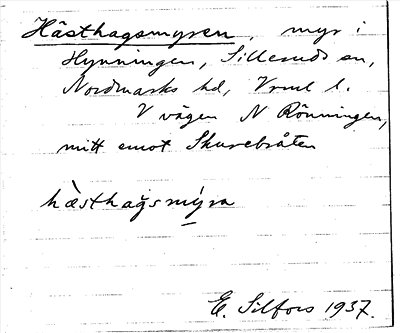 Hästhagsmyren, myr i
Hynningen, Silleruds sn,
Nordmarks hd, Vrml l.
V vägen N Rönningen,
mitt emot Skurebråten
hàsthağsmýra
E. Silfors 1937.